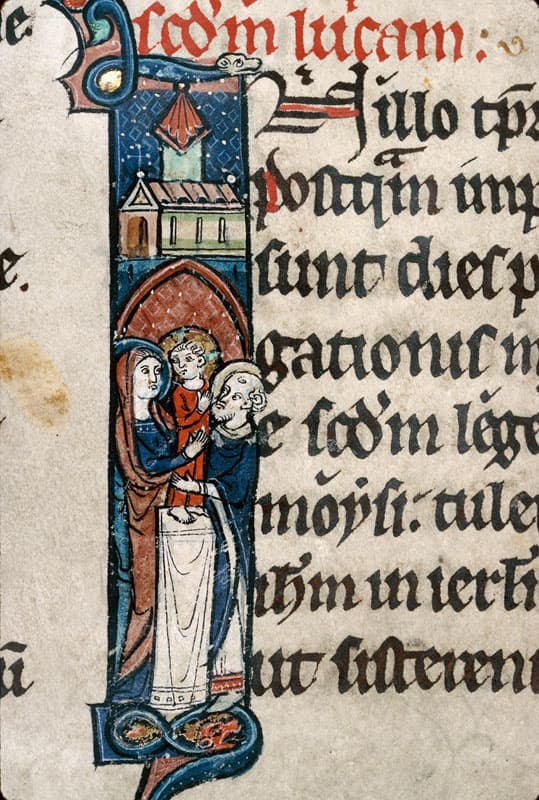 scd̄m lucam:
illo tp̄r
postq̄m imp
sunt dies p
gationis m
e scd̄m lēge
mōysi. tule
ih̄m in ierl̄i
ut sisteren